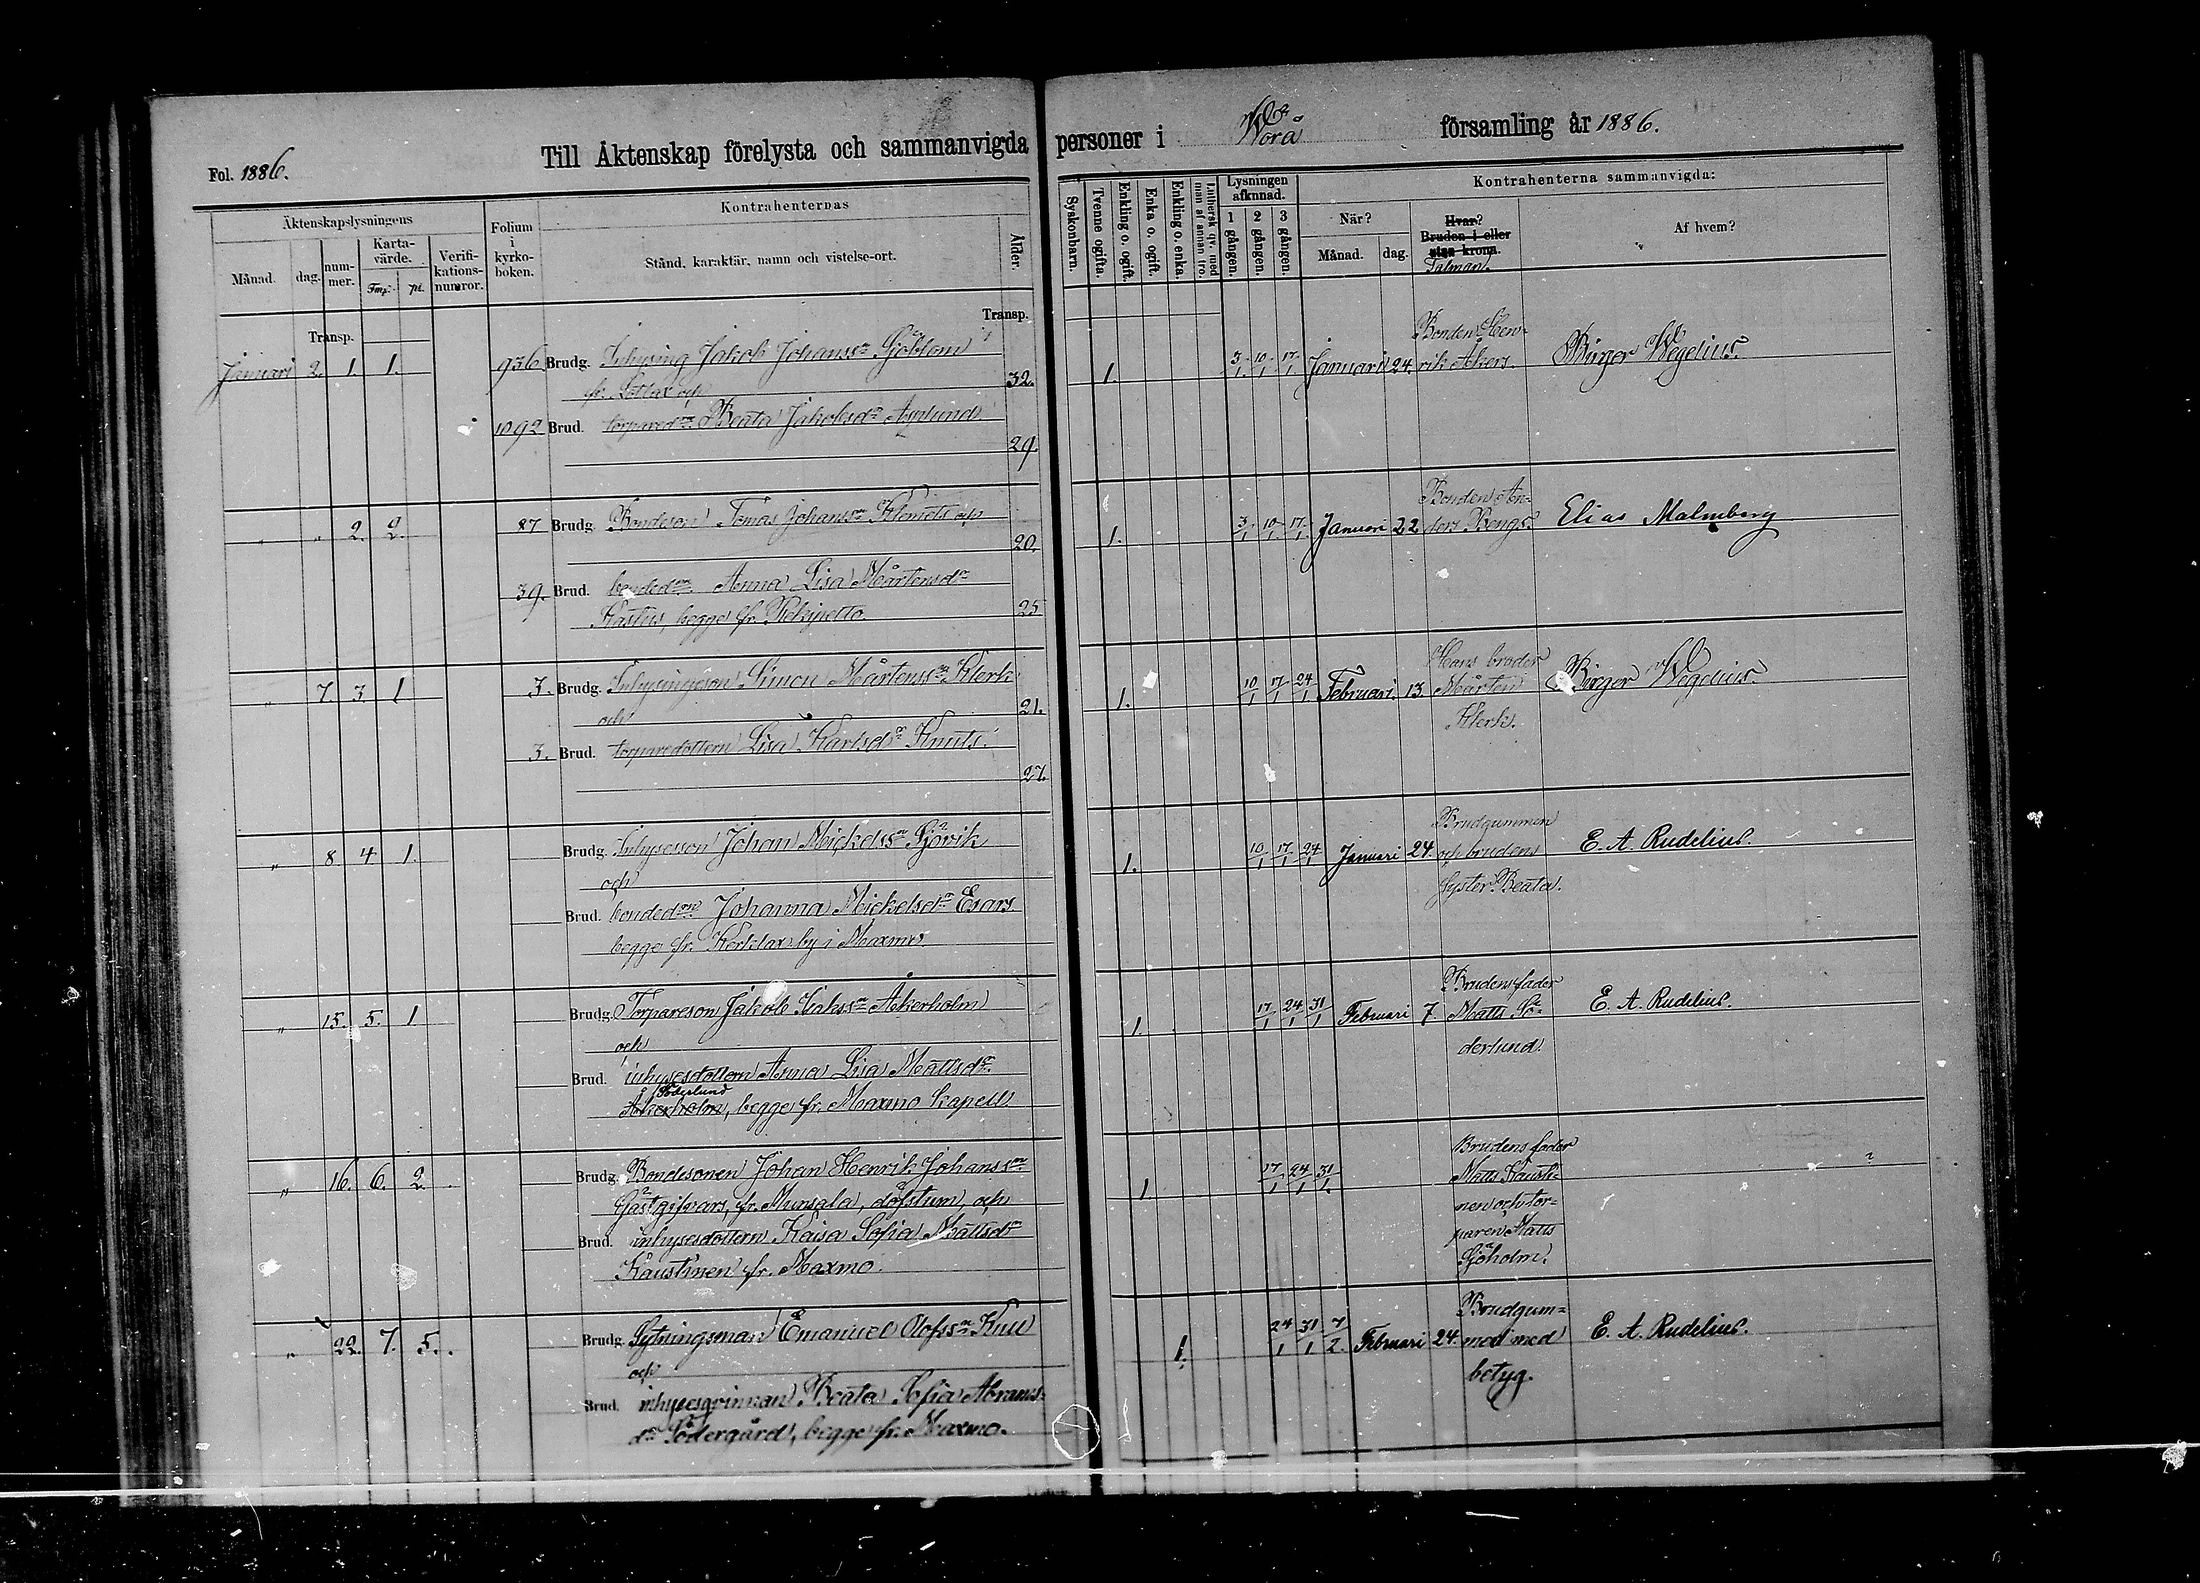 Fol. 1886.
Till Äktenskap förelysta och sammanvigda personer i Wörå församling år 1886.
Äktenskapslysningens
Månad.
dag.
num-
mer.
Karta-
värde.
Fmf.
pi.
Verifi-
kations-
numror.
Folium
i
kyrko-
boken.
Kontrahenternas
Stånd, karaktär, namn och vistelse-ort.
Ålder.
Syskonbarn.
Tvenne ogifta.
Enkling o. ogift.
Enka o. ogift.
Enkling o. enka.
Luthersk qv. med
man af annan tro.
Lysningen
afkunnad.
1 gången.
2 gången.
3 gången.
Kontrahenterna sammanvigda:
När?
Månad.
dag.
Hvar?
Bruden i eller
utan krona.
Talman.
Af hvem?
Transp.
Transp.
Januari 2. 1. 1. 936 Brudg. Inhysing Jakob Johanss:n Sjöblom
fr. Kotlax och 32.
1092 Brud. torpared:rn Beata Jakobsd:r Asplund
29.
1. 3/1 10/1 17/1 Januari 24.
Bonden Hen-
rik Åkers.
Birger Wegelius.
" " 2. 2. 87 Brudg. Bondeson Tomas Johanss:n Klemets och
20.
39. Brud. bonded:rn Anna Lisa Mårtensd:r
Kastus, begge fr. Rekipelto. 25
1. 3/1 10/1 17/1 Januari 22
Bonden An-
ders Bengs.
Elias Malmberg
" 7. 3. 1 3. Brudg. Inhysingeson Simon Mårtenss:n Klerk
och 21.
3. Brud. torparedottern Lisa Karlsd:r Knuts.
27.
1. 10/1 17/1 24/1 Februari 13.
Hans broder
Mårten
Klerk.
Birger Wegelius.
" 8 4 1. Brudg. Inhyseson Johan Mickelss:n Sjövik
och
Brud. bonded:rn Johanna Mickelsd:r Esars
begge fr. Kerklax by i Maxmo
1. 10/1 17/1 24/1 Januari 24.
Brudgummen
och brudens
syster Beata.
E. A. Rudelius.
" 15. 5. 1 Brudg. Torpareson Jakob Isakss:n Åkerholm
och
Brud. inhysesdottern Anna Lisa Mattsd:r
Söderlund
Åkerholm, begge fr. Maxmo kapell
1. 17/1 24/1 31/1 Februari 7.
Brudens fader
Matts Sö-
derlund.
E. A. Rudelius.
" 16. 6. 2. Brudg. Bondesonen Johan Henrik Johanss:n
Gästgifvars, fr. Munsala, döfstum, och
Brud. inhysesdottern Kaisa Sofia Mattsd:r
Kaustinen fr. Maxmo.
1. 17/1 24/1 31/1.
Brudens fader
Matts Kausti-
nen och tor-
paren Matts
Sjöholm.
?
" 22. 7. 5. Brudg. Sytningsman Emanuel Olofss:n Knu
och
Brud. inhysesqvinnan Beata Sofia Abrams-
d:r Södergård, begge fr. Maxmo.
1. 24/1 31/1 7/2. Februari 24.
Brudgum-
med med
betyg.
E. A. Rudelius.